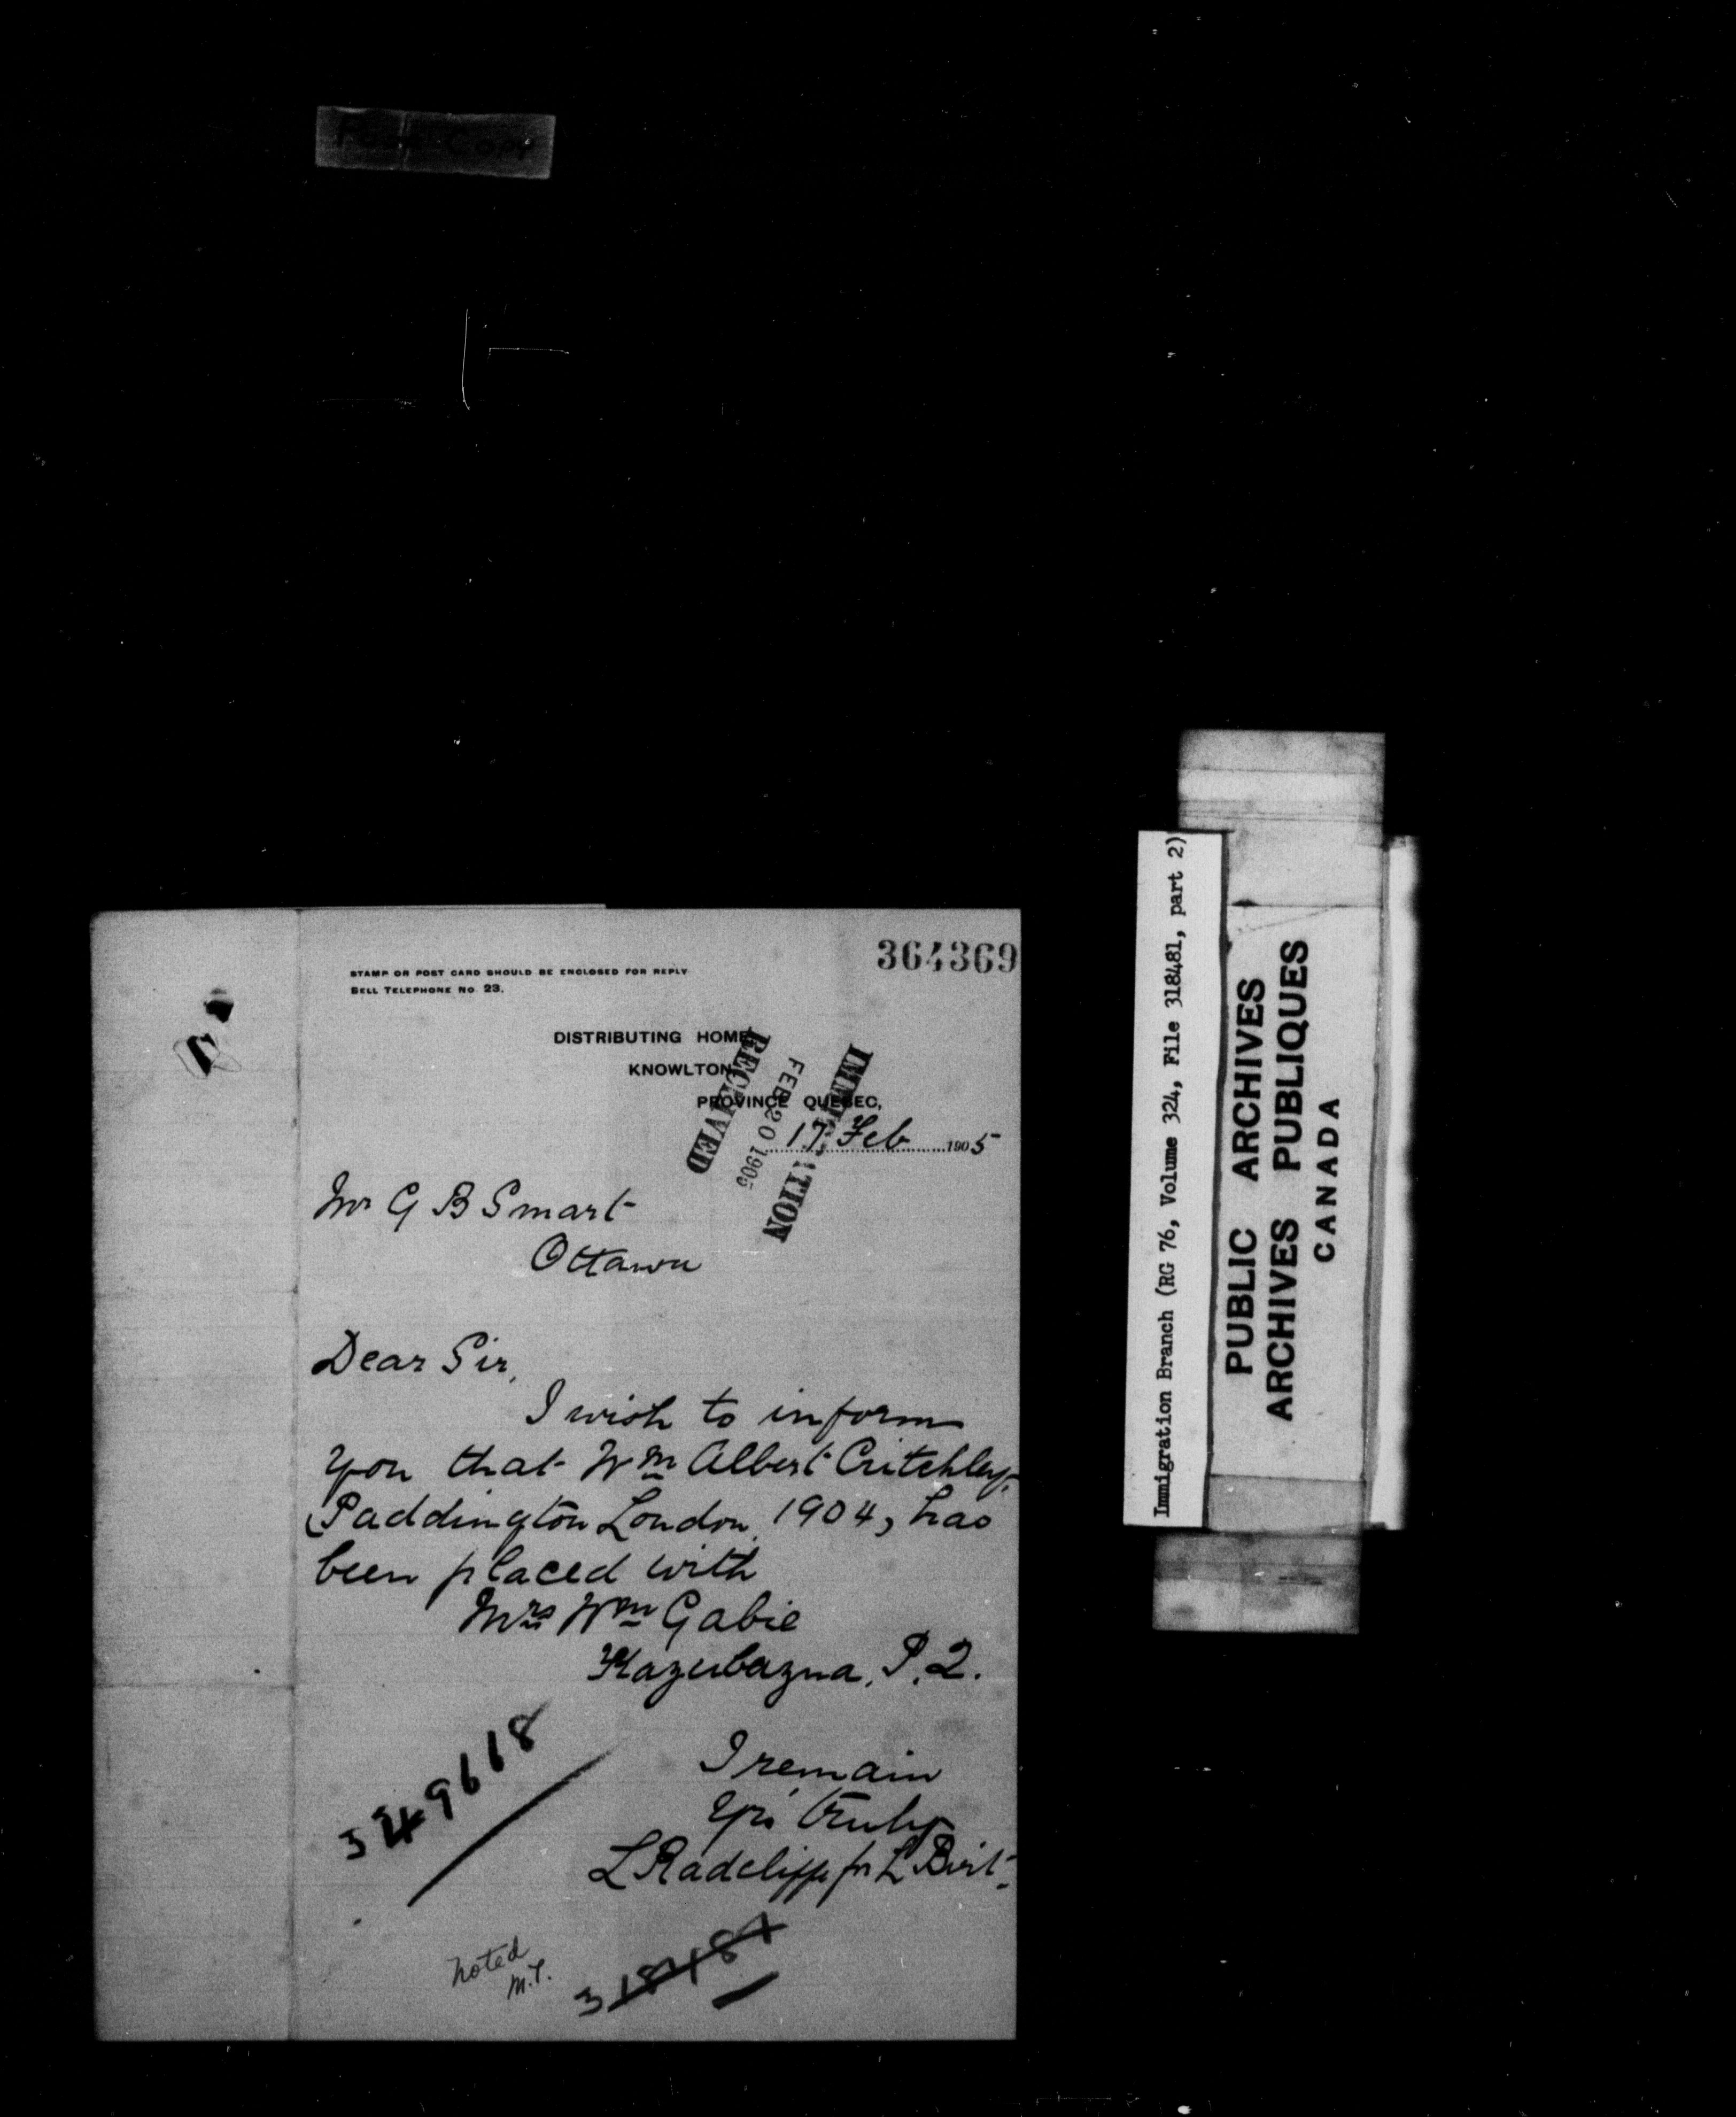 Poor Copy
364369
STAMP OR POST CARD SHOULD BE ENCLOSED FOR REPLY
BELL TELEPHONE NO 23.
DISTRIBUTING HOME
KNOWLTON
PROVINCE QUEBEC,
17 Feb 1905
RECEIVED
FEB 20 1905
IMMIGRATION
Mr G B Smart
Ottawa
Dear Sir,
I wish to inform
you that Wm Albert Critchley,
Paddington London 1904, has
been placed with
Mrs Wm Gabie
Kazubazua, P.Q.
I remain
Yrs truly
L Radcliffe for L Birt
349618
noted
M.T.
318481
Immigration Branch (RG 76, Volume 324, File 318481, part 2)
PUBLIC ARCHIVES
ARCHIVES PUBLIQUES
CANADA